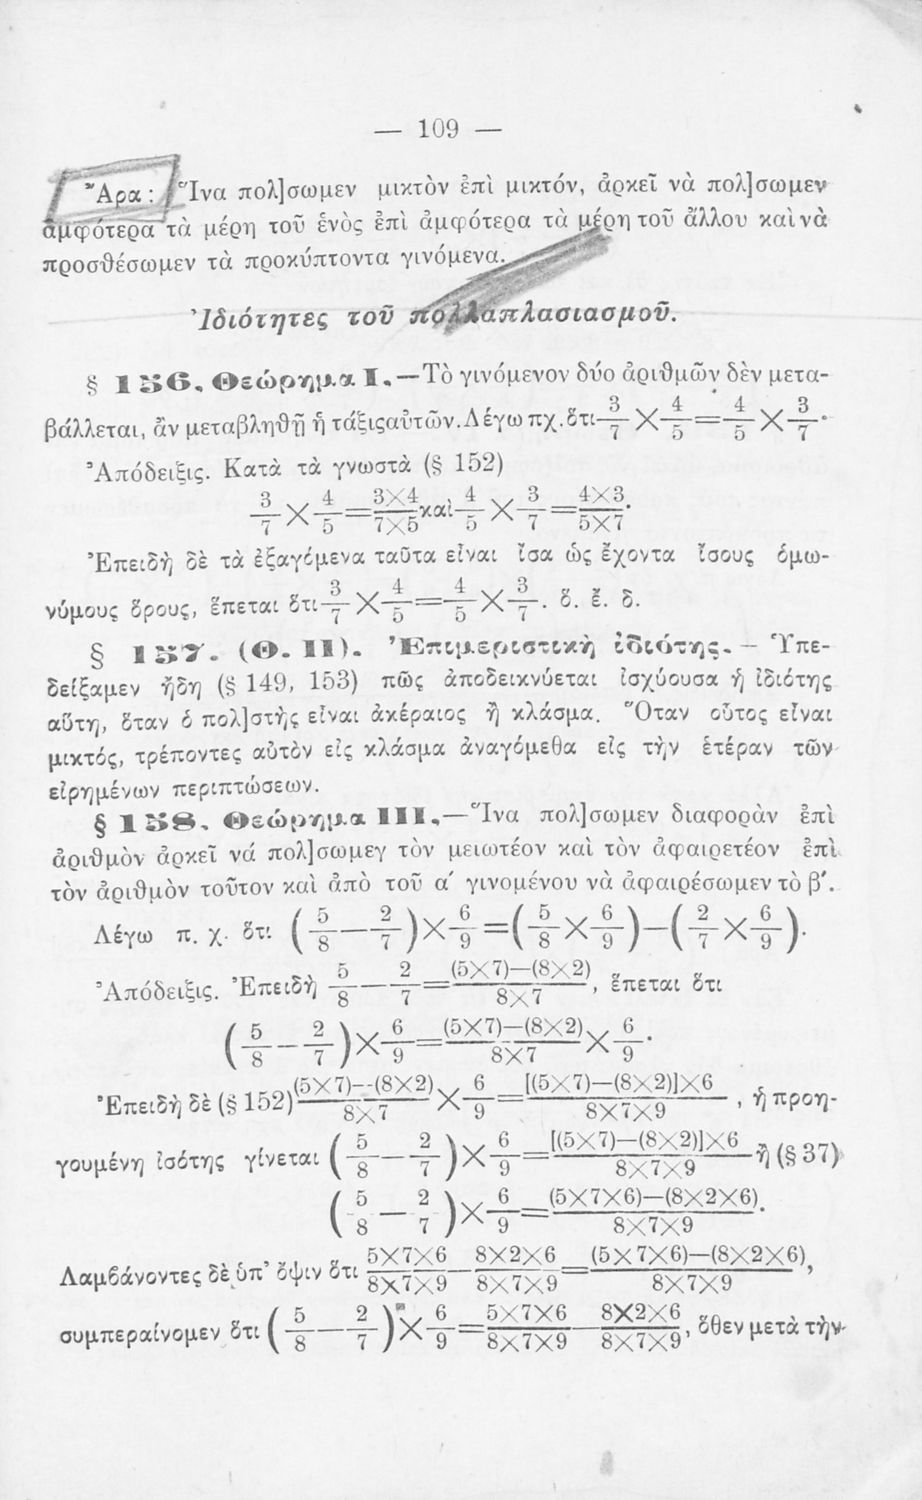 — 109 —
Ἄρα: Ἵνα πολ]σωμεν μικτὸν ἐπὶ μικτόν, ἀρκεῖ νὰ πολ]σωμεν
ἀμφότερα τὰ μέρη τοῦ ἑνὸς ἐπὶ ἀμφότερα τὰ μέρη τοῦ ἄλλου καὶ νὰ
προσθέσωμεν τὰ προκύπτοντα γινόμενα.
Ἰδιότητες τοῦ πολλαπλασιασμοῦ.
§ 156. Θεώρημα Ι.—Τὸ γινόμενον δύο ἀριθμῶν δὲν μετα-
βάλλεται, ἂν μεταβληθῇ ἡ τάξις αὐτῶν. Λέγω πχ. ὅτι 3/7 × 4/5 = 4/5 × 3/7.
Ἀπόδειξις. Κατὰ τὰ γνωστὰ (§ 152)
3/7 × 4/5 = 3×4/7×5 καὶ 4/5 × 3/7 = 4×3/5×7.
Ἐπειδὴ δὲ τὰ ἐξαγόμενα ταῦτα εἶναι ἴσα ὡς ἔχοντα ἴσους ὁμω-
νύμους ὅρους, ἕπεται ὅτι 3/7 × 4/5 = 4/5 × 3/7. ὅ. ἔ. δ.
§ 157. (Θ. ΙΙ). Ἐπιμεριστικὴ ἰδιότης.— Ὑπε-
δείξαμεν ἤδη (§ 149, 153) πῶς ἀποδεικνύεται ἰσχύουσα ἡ ἰδιότης
αὕτη, ὅταν ὁ πολ]στὴς εἶναι ἀκέραιος ἢ κλάσμα. Ὅταν οὗτος εἶναι
μικτός, τρέποντες αὐτὸν εἰς κλάσμα ἀναγόμεθα εἰς τὴν ἑτέραν τῶν
εἰρημένων περιπτώσεων.
§ 158. Θεώρημα ΙΙΙ.—Ἵνα πολ]σωμεν διαφορὰν ἐπὶ
ἀριθμὸν ἀρκεῖ νά πολ]σωμεγ τὸν μειωτέον καὶ τὸν ἀφαιρετέον ἐπὶ
τὸν ἀριθμὸν τοῦτον καὶ ἀπὸ τοῦ α΄ γινομένου νὰ ἀφαιρέσωμεν τὸ β΄.
Λέγω π. χ. ὅτι (5/8 — 2/7) × 6/9 = (5/8 × 6/9) — (2/7 × 6/9).
Ἀπόδειξις. Ἐπειδὴ 5/8 — 2/7 = (5×7)—(8×2)/8×7, ἕπεται ὅτι
(5/8 — 2/7) × 6/9 = (5×7)—(8×2)/8×7 × 6/9.
Ἐπειδὴ δὲ (§ 152) (5×7)—(8×2)/8×7 × 6/9 = [(5×7)—(8×2)]×6/8×7×9, ἡ προη-
γουμένη ἰσότης γίνεται (5/8 — 2/7) × 6/9 = [(5×7)—(8×2)]×6/8×7×9 ἢ (§ 37)
(5/8 — 2/7) × 6/9 = (5×7×6)—(8×2×6)/8×7×9.
Λαμβάνοντες δὲ ὑπ' ὄψιν ὅτι 5×7×6/8×7×9 — 8×2×6/8×7×9 = (5×7×6)—(8×2×6)/8×7×9,
συμπεραίνομεν ὅτι (5/8 — 2/7) × 6/9 = 5×7×6/8×7×9 — 8×2×6/8×7×9, ὅθεν μετὰ τὴν